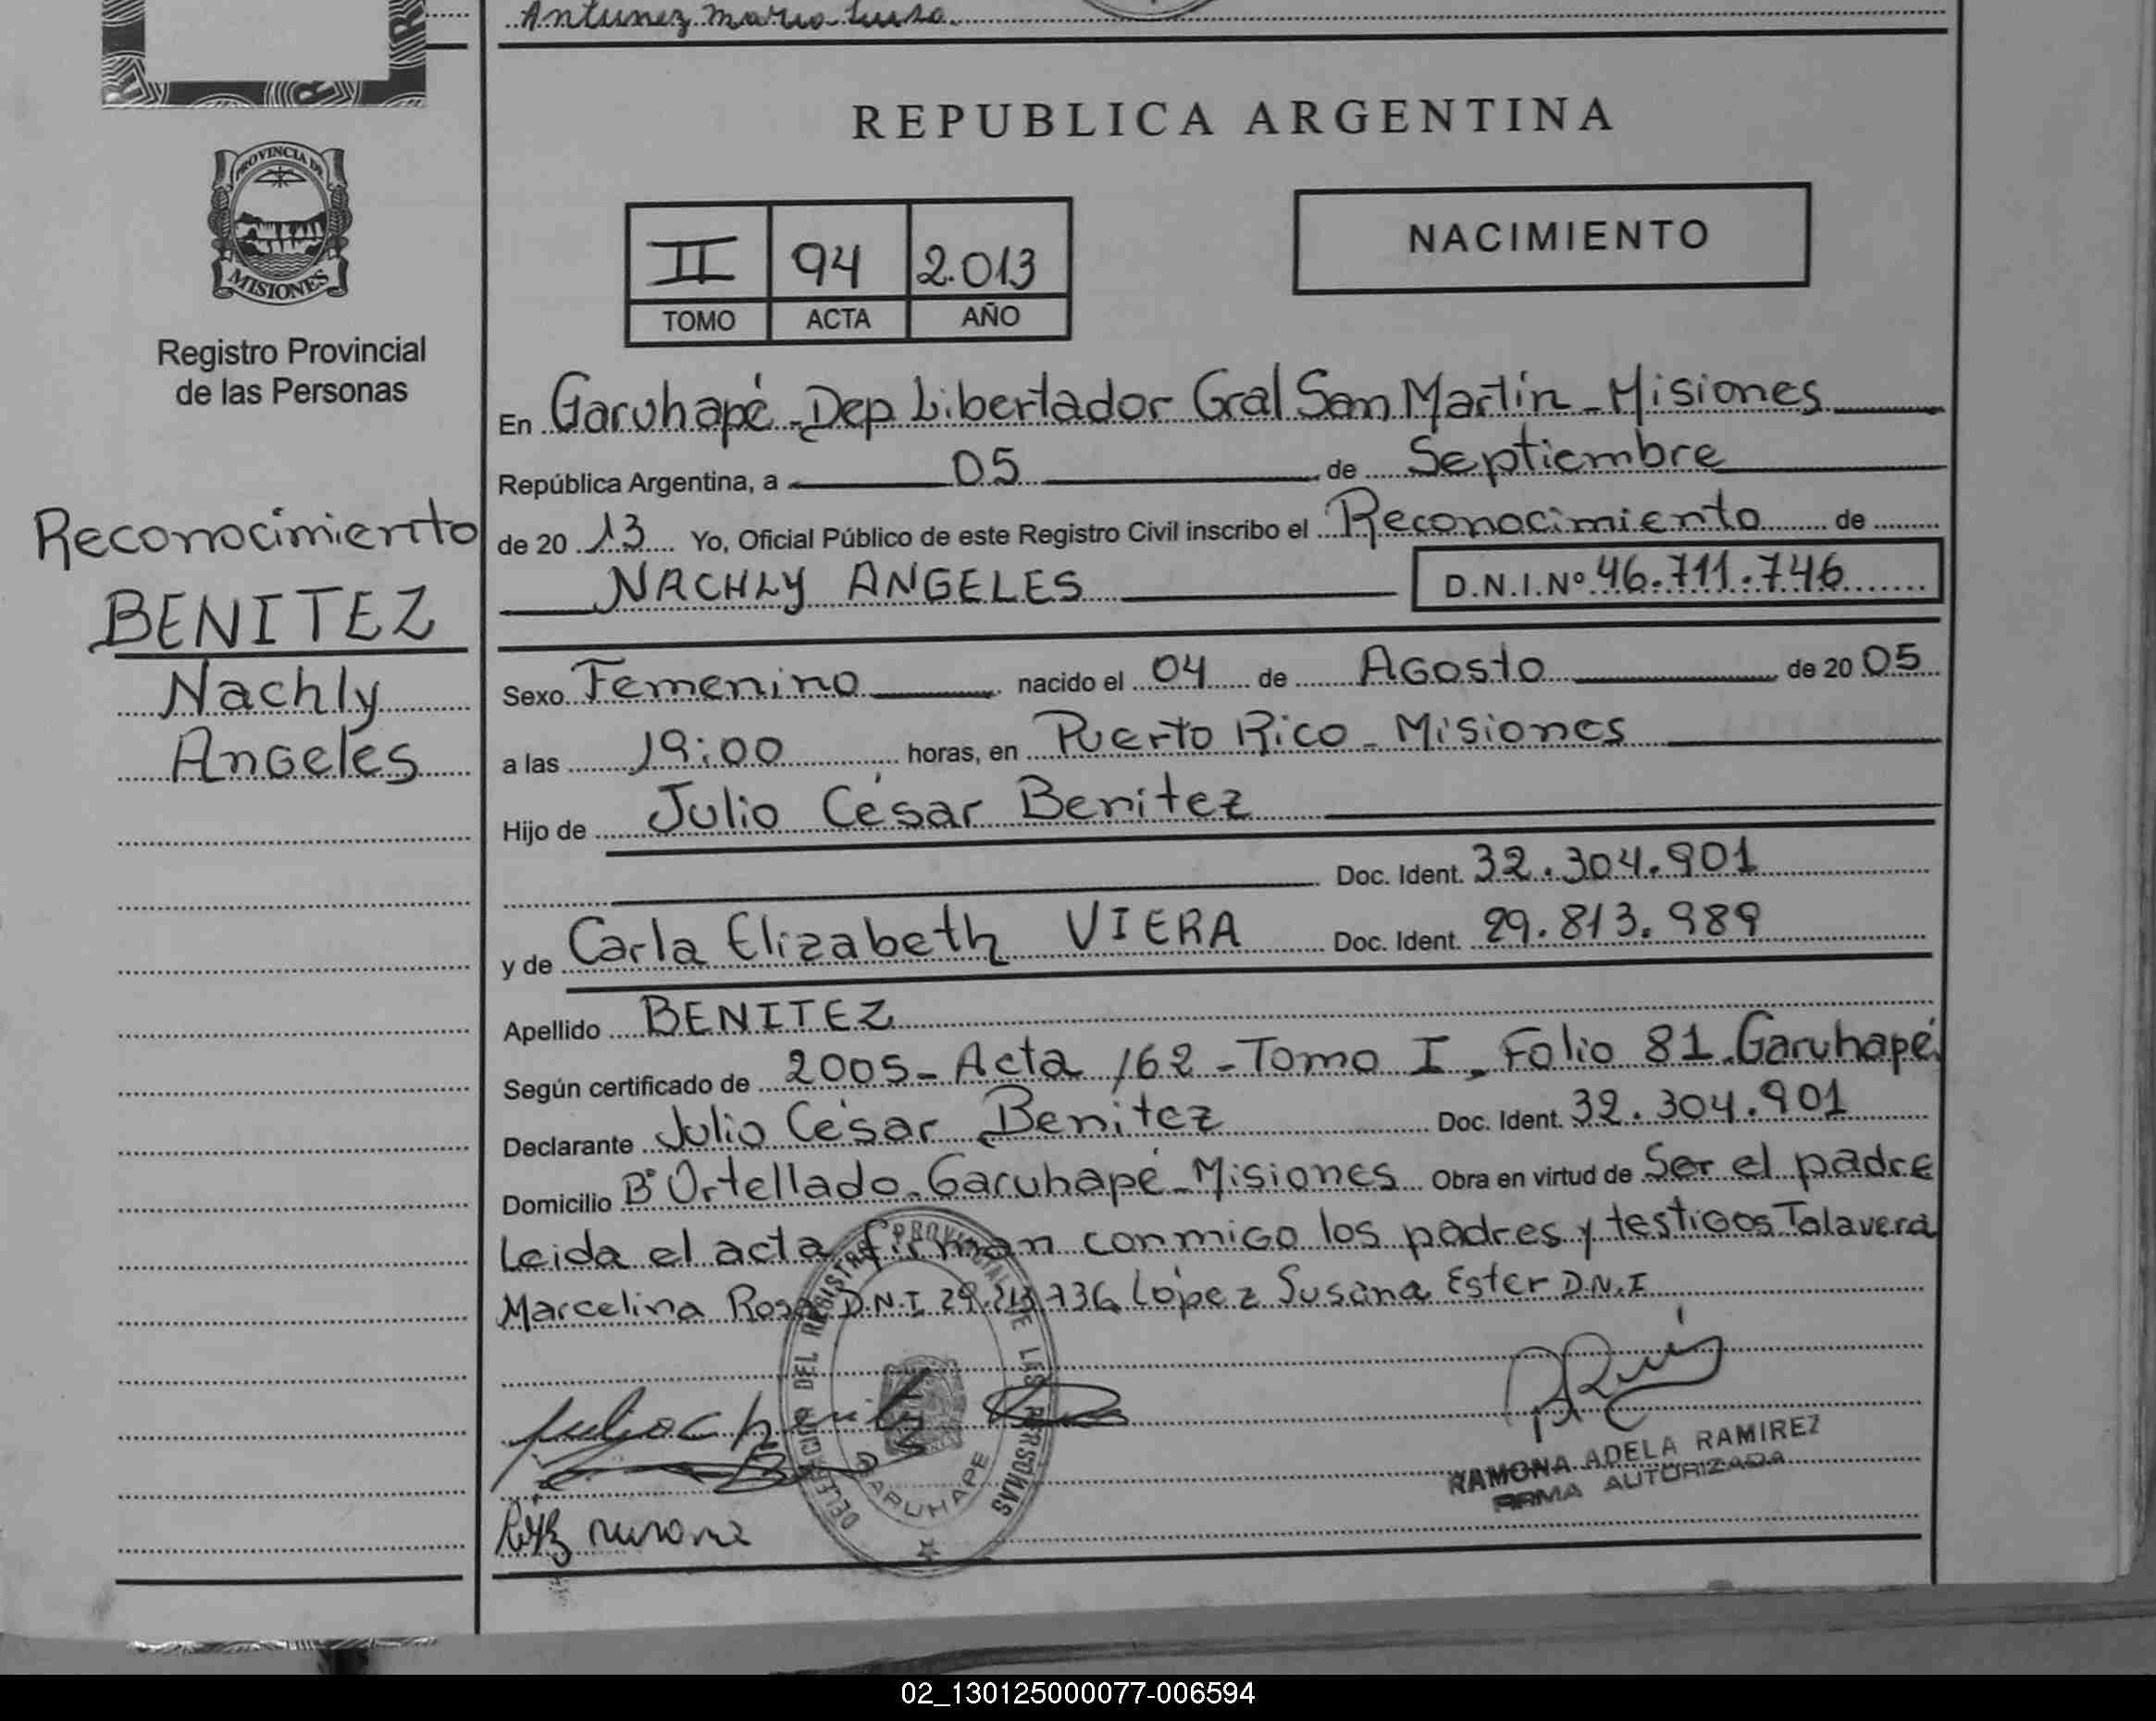 Antunez Maria Luisa.
REPUBLICA ARGENTINA
PROVINCIA DE
MISIONES
Registro Provincial
de las Personas
II 94 2.013
TOMO ACTA AÑO
NACIMIENTO
Reconocimiento
BENITEZ
Nachly
Angeles
En Garuhapé - Dep Libertador Gral San Martín - Misiones
República Argentina, a 05 de Septiembre
de 20 13 Yo, Oficial Público de este Registro Civil inscribo el Reconocimiento de
NACHLY ANGELES D.N.I.Nº 46.711.746
Sexo Femenino nacido el 04 de Agosto de 20 05
a las 19:00 horas, en Puerto Rico - Misiones
Hijo de Julio César Benitez
Doc. Ident. 32.304.901
y de Carla Elizabeth VIERA Doc. Ident. 29.813.989
Apellido BENITEZ
Según certificado de 2005 - Acta 162 - Tomo I - Folio 81 - Garuhapé
Declarante Julio César Benitez Doc. Ident. 32.304.901
Domicilio Bº Ortellado - Garuhapé - Misiones Obra en virtud de Ser el padre
Leida el acta firman conmigo los padres y testigos Talavera
Marcelina Rosa D.N.I López Susana Ester D.N.I
DELEGACION DEL REGISTRO PROVINCIAL DE LAS PERSONAS
GARUHAPE
RAMONA ADELA RAMIREZ
FIRMA AUTORIZADA
02_130125000077-006594